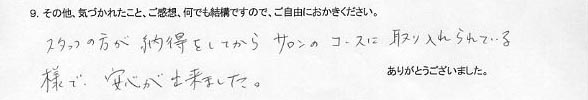 9. その他、気づかれたこと、ご感想、何でも結構ですので、ご自由におかきください。
スタッフの方が 納得をしてから サロンの コースに 取り入れられている
様で、安心が出来ました。
ありがとうございました。